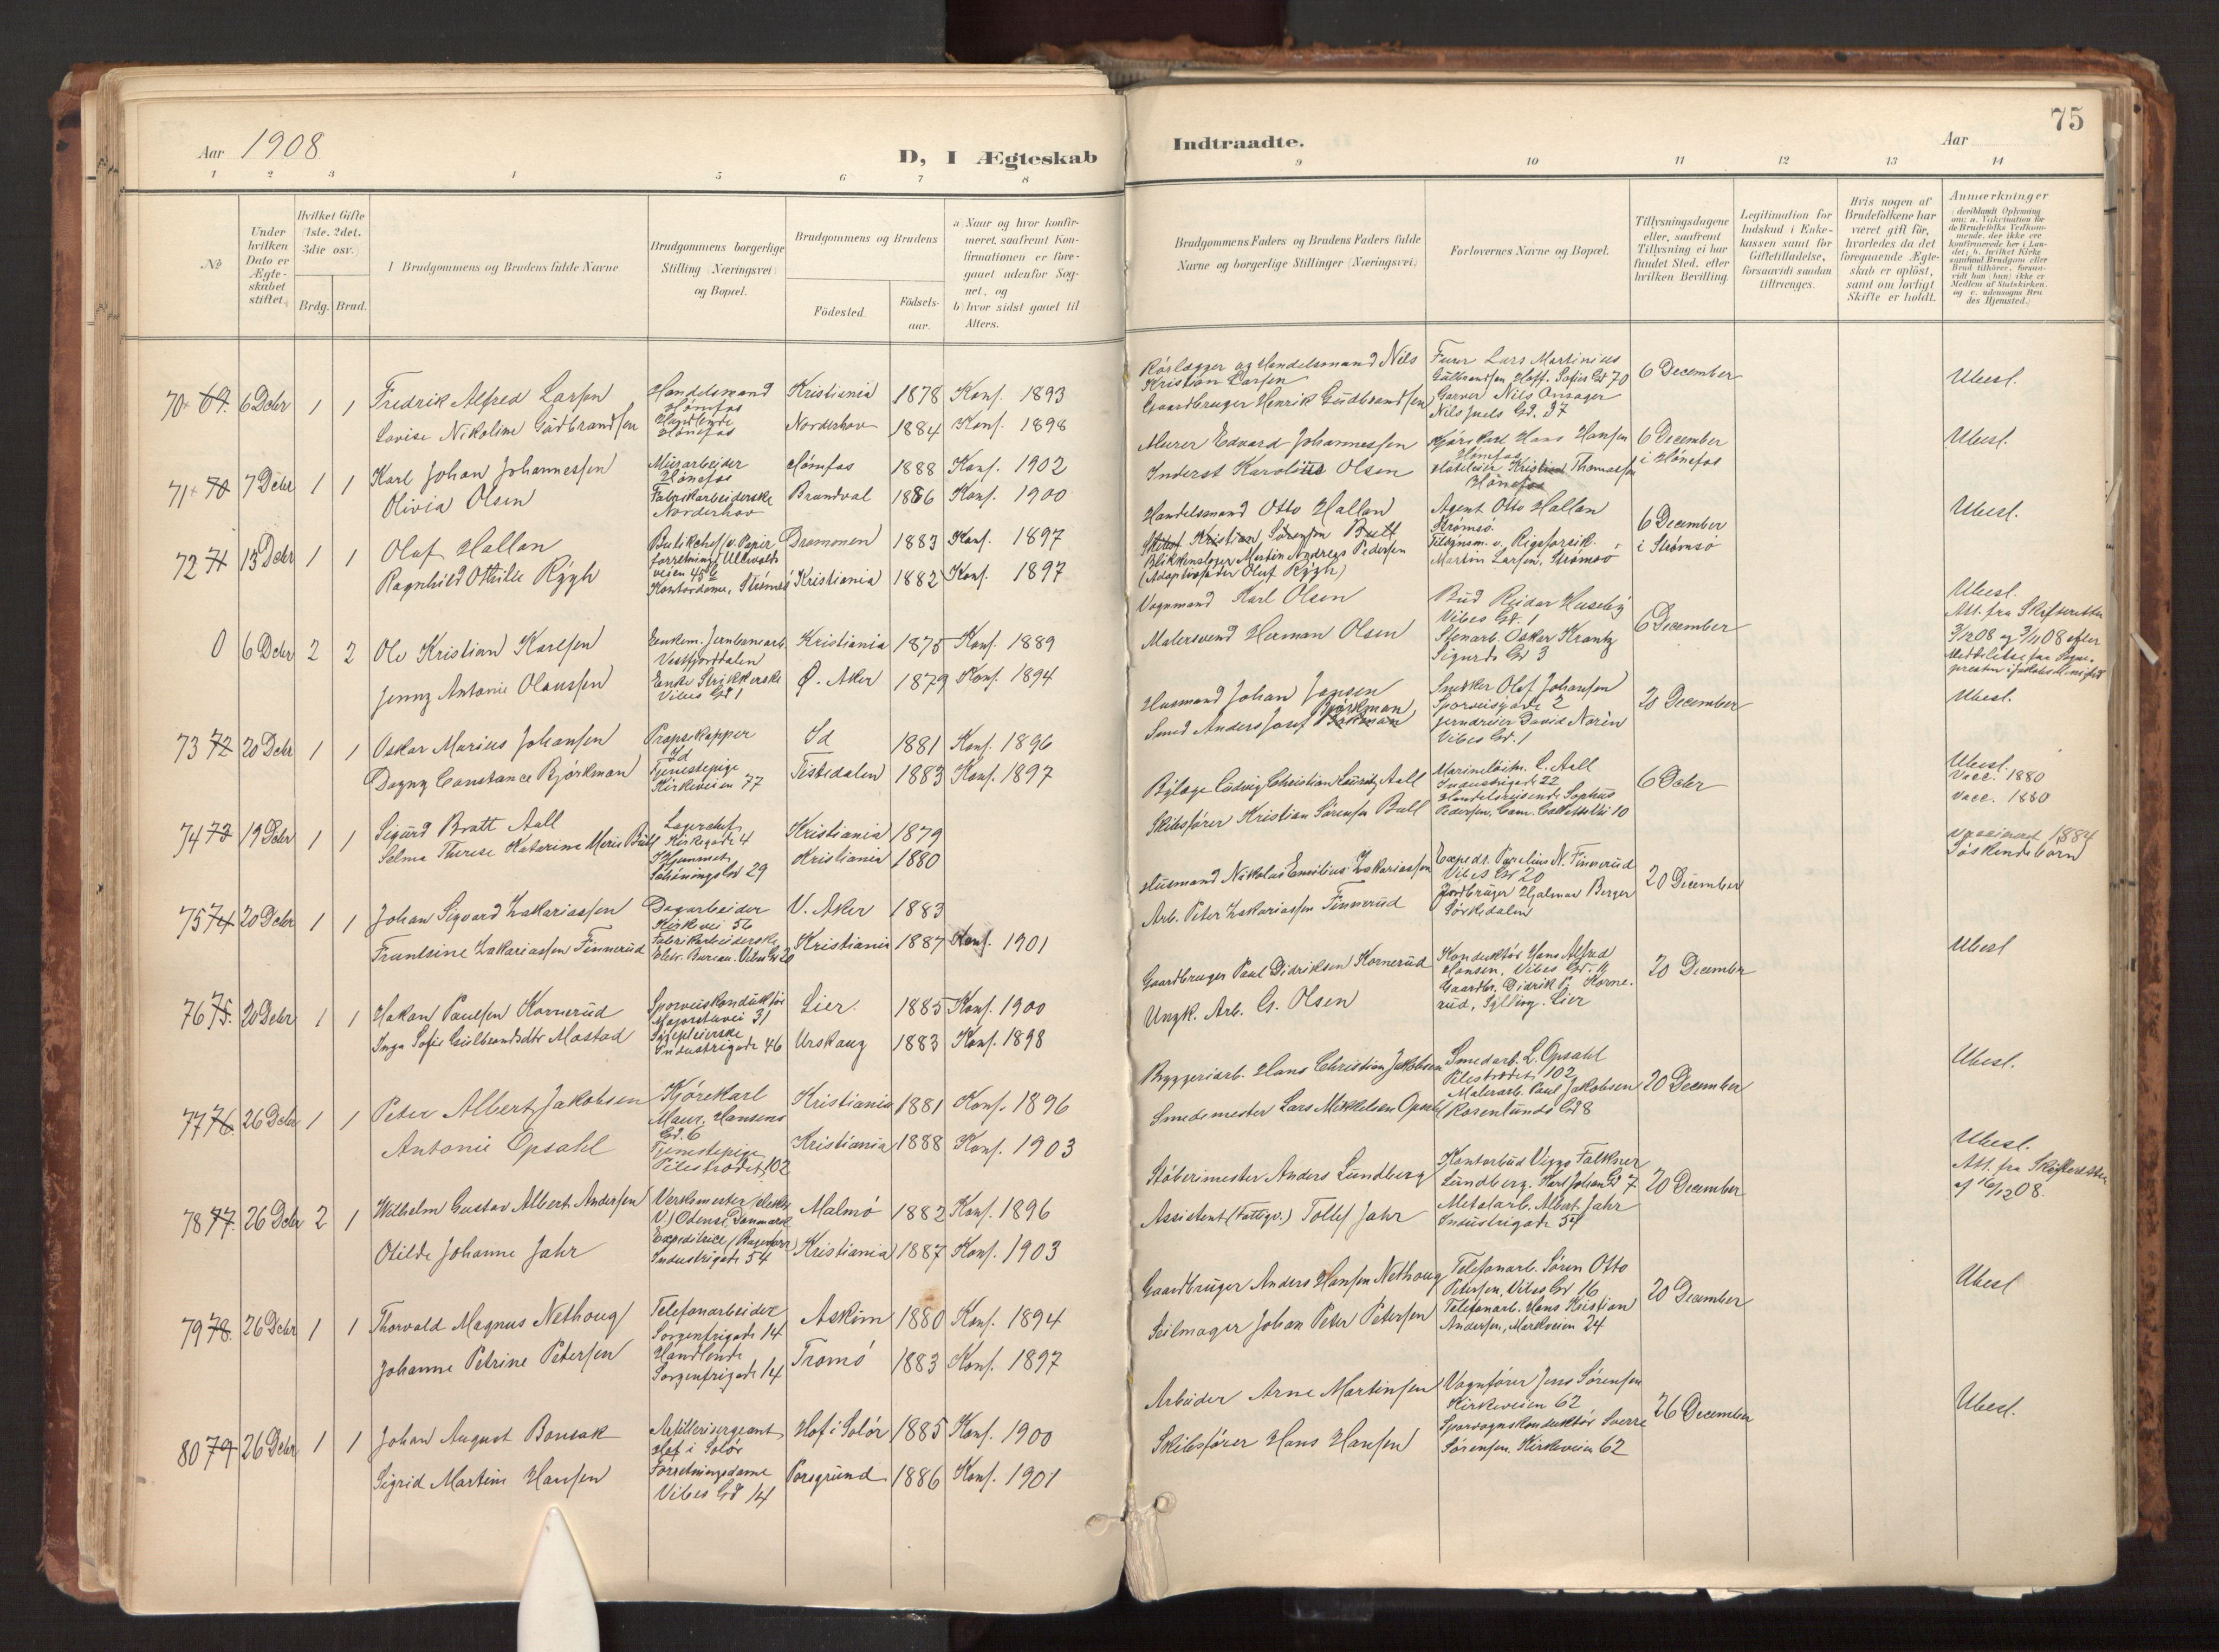 Aar 1908
D, I Ægteskab
1 2 3 4 5 6 7 8
No
Under hvilken Dato er Ægteskabet stiftet.
Hvilket Gifte (1ste. 2det. 3die osv.)
Brdg. Brud.
Brudgommens og Brudens fulde Navne
Brudgommens borgerlige Stilling (Næringsvei) og Bopæl.
Brudgommens og Brudens
Födested.
Födselsaar.
a) Naar og hvor konfirmeret, saafremt Konfirmationen er foregaaet udenfor Sognet, og
b) hvor sidst gaaet til Alters.
70 69. 6 Dcbr 1 1 Fredrik Alfred Larsen Handelsmand Hønefos Kristiania 1878 Konf. 1893
Lovise Nikoline Gudbrandsen Handlende Hønefos Norderhov 1884 Konf. 1898
71 70 7 Dcbr 1 1 Karl Johan Johannessen Murarbeider Hønefos Hønefos 1888 Konf. 1902
Olivia Olsen Fabrikarbeiderske Norderhov Brandval 1886 Konf. 1900
72 71 13 Dcbr 1 1 Olaf Hallan Butikchef v. Papirforretning, Ullevoldsveien Drammen 1883 Konf. 1897
Ragnhild Othilie Rygh Kontordame, Strømsö Kristiania 1882 Konf. 1897
0 6 Dcbr 2 2 Ole Kristian Karlsen Enkem. Jernbanearb. Vestfjorddalen Kristiania 1875 Konf. 1889
Jenny Antonie Olaussen Enke Strikkerske Vibes Gd 1 Ø. Aker 1879 Konf. 1894
73 72 20 Dcbr 1 1 Oskar Marius Johansen Propskapper Id Id 1881 Konf. 1896
Dagny Constance Björkman Tjenestepige Kirkeveien 77 Tistedalen 1883 Konf. 1897
74 73 19 Dcbr 1 1 Sigurd Bratt Aall Lagerchef Kirkegade 4 Kristiania 1879
Selma Therese Katarine Marie Bull Hjemmet, Schöningsgd 29 Kristiania 1880
75 74 20 Dcbr 1 1 Johan Sigvard Zakariassen Dagarbeider Kirkevei 56 V. Aker 1883
Frantsine Zakariassen Finnerud Fabrikarbeiderske Elektr. Bureau. Vibes Gd 20 Kristiania 1887 Konf. 1901
76 75. 20 Dcbr 1 1 Hakon Paulsen Kornerud Sporveiskonduktør Majorstuvei 31 Lier. 1885 Konf. 1900
Inga Sofie Gulbrandsdtr Mostad Syerske Industrigade 46 Urskoug 1883 Konf. 1898
77 76. 26 Dcbr 1 1 Peter Albert Jakobsen Kjörekarl Maur. Hansens Gd. 6 Kristiania 1881 Konf. 1896
Antonie Opsahl Tjenestepige Pilestrædet 102 Kristiania 1888 Konf. 1903
78 77. 26 Dcbr 2 1 Wilhelm Gustav Albert Andersen Verksmester (elektr. V) Odense, Danmark Malmö 1882 Konf. 1896
Otilde Johanne Jahr Expeditrice Industrigade 54 Kristiania 1887 Konf. 1903
79 78. 26 Dcbr 1 1 Thorvald Magnus Nethoug Telefonarbeider Sorgenfrigade 14 Askim 1880 Konf. 1894
Johanne Petrine Petersen Handlende Sorgenfrigade 14 Tromö 1883 Konf. 1897
80 79 26 Dcbr 1 1 Johan August Bonsak Artillerisergeant Hof i Solör Hof i Solör 1885 Konf. 1900
Sigrid Martine Hansen Forretningsdame Vibes Gd 14 Porsgrund 1886 Konf. 1901
75
Indtraadte.
Aar
9 10 11 12 13 14
Brudgommens Faders og Brudens Faders fulde Navne og borgerlige Stillinger (Næringsvei)
Forlovernes Navne og Bopæl.
Tillysningsdagene eller, saafremt Tillysning ei har fundet Sted, efter hvilken Bevilling.
Legitimation for Indskud i Enkekassen samt for Giftetilladelse, forsaavidt saadan tiltrænges.
Hvis nogen af Brudefolkene har været gift för, hvorledes da det foregaaende Ægteskab er oplöst, samt om lovligt Skifte er holdt.
Anmærkninger
(deriblandt Oplysning om: a. Vakcination for de Brudefolks Vedkommende, der ikke ere konfirmerede her i Landet; b. hvilket Kirkesamfund Brudgom eller Brud tilhører, forsaavidt han (hun) ikke er Medlem af Statskirken, og c. udensogns Brudes Hjemsted.)
Rörlægger og Handelsmand Nils Kristian Larsen Furer Lars Martinius Gulbrandsen, Hoff. Sofies Gd 70 6 December Ubesl.
Gaardbruger Henrik Gudbrandsen Garver Nils Onsager Nils Juels Gd. 37
Murer Edvard Johannessen Kjörekarl Hans Hansen Hönefos 6 December i Hönefos Ubesl.
Inderst Karolius Olsen Thomassen Hönefos
Handelsmand Otto Hallan Agent Otto Hallan Strömsö. 6 December i Strömsö Ubesl.
Skibsf. Kristian Sörensen Bull
Blikkenslager Martin Andreas Pedersen
(Adoptivfader Oluf Rygh) Martin Larsen, Strömsö
Vognmand Karl Olsen Bud Reidar Huseby Vibes Gd. 1 6 December Ubesl.
Malersvend Herman Olsen Stenarb. Oskar Krantz Sigurds Gd 3 Att. fra Skifteretten
Husmand Johan Jansen Snedker Olaf Johansen Sporveisgade 2 20 December Ubesl.
Smed Anders Josef Björkman Jerndreier David Norén Vibes Gd. 1
Byläge Ludvig Christian Lauritz Aall Marinekapt. C. Aall Industrigade 22 6 Dcbr Ubesl. Vacc. 1880
Skibsförer Kristian Sörensen Bull Handelsreisende Sophus Pedersen, Cam. Collettsvei 10 Vacc. 1880
Husmand Nikolai Emilius Zakariassen Exped. N. Finnerud Vibes Gd 20 20 December Vaccineret 1884 Söskendebörn
Arb. Peter Zakariassen Finnerud Jordbruger Hjalmar Berger Sörkedalen
Gaardbruger Paul Didriksen Kornerud Konduktör Hans Alfred Hansen, Vibes Gd. 11 20 December Ubesl
Ungk. Arb. G. Olsen Gaardbr. Didrik P. Kornerud, Sylling. Lier
Bryggeriarb. Hans Christian Jakobsen Smedarb. L. Opsahl Pilestrædet 102 20 December Ubesl.
Smedemester Lars Mikkelsen Opsahl Malerarb. Paul Jakobsen Rosenlunds Gd 8
Stöberimester Anders Lundberg Kontorbud Viggo Falkner Lundberg. Karl Johan Gd 7 20 December Ubesl. Att. fra Skifteretten af 16/12 08.
Assistent (Fattigv.) Tollef Jahr Metalarb. Albert Jahr Industrigade 54
Gaardbruger Anders Hansen Nethoug Telefonarb. Sören Otto Petersen, Vibes Gd 16 20 December Ubesl
Seilmager Johan Peter Petersen Telefonarb. Hans Kristian Andersen, Markveien 24
Arbeider Arne Martinsen Vognförer Jens Sörensen Kirkeveien 62 26 December Ubesl.
Skibsförer Hans Hansen Sporvognskonduktör Sverre Sörensen. Kirkeveien 62